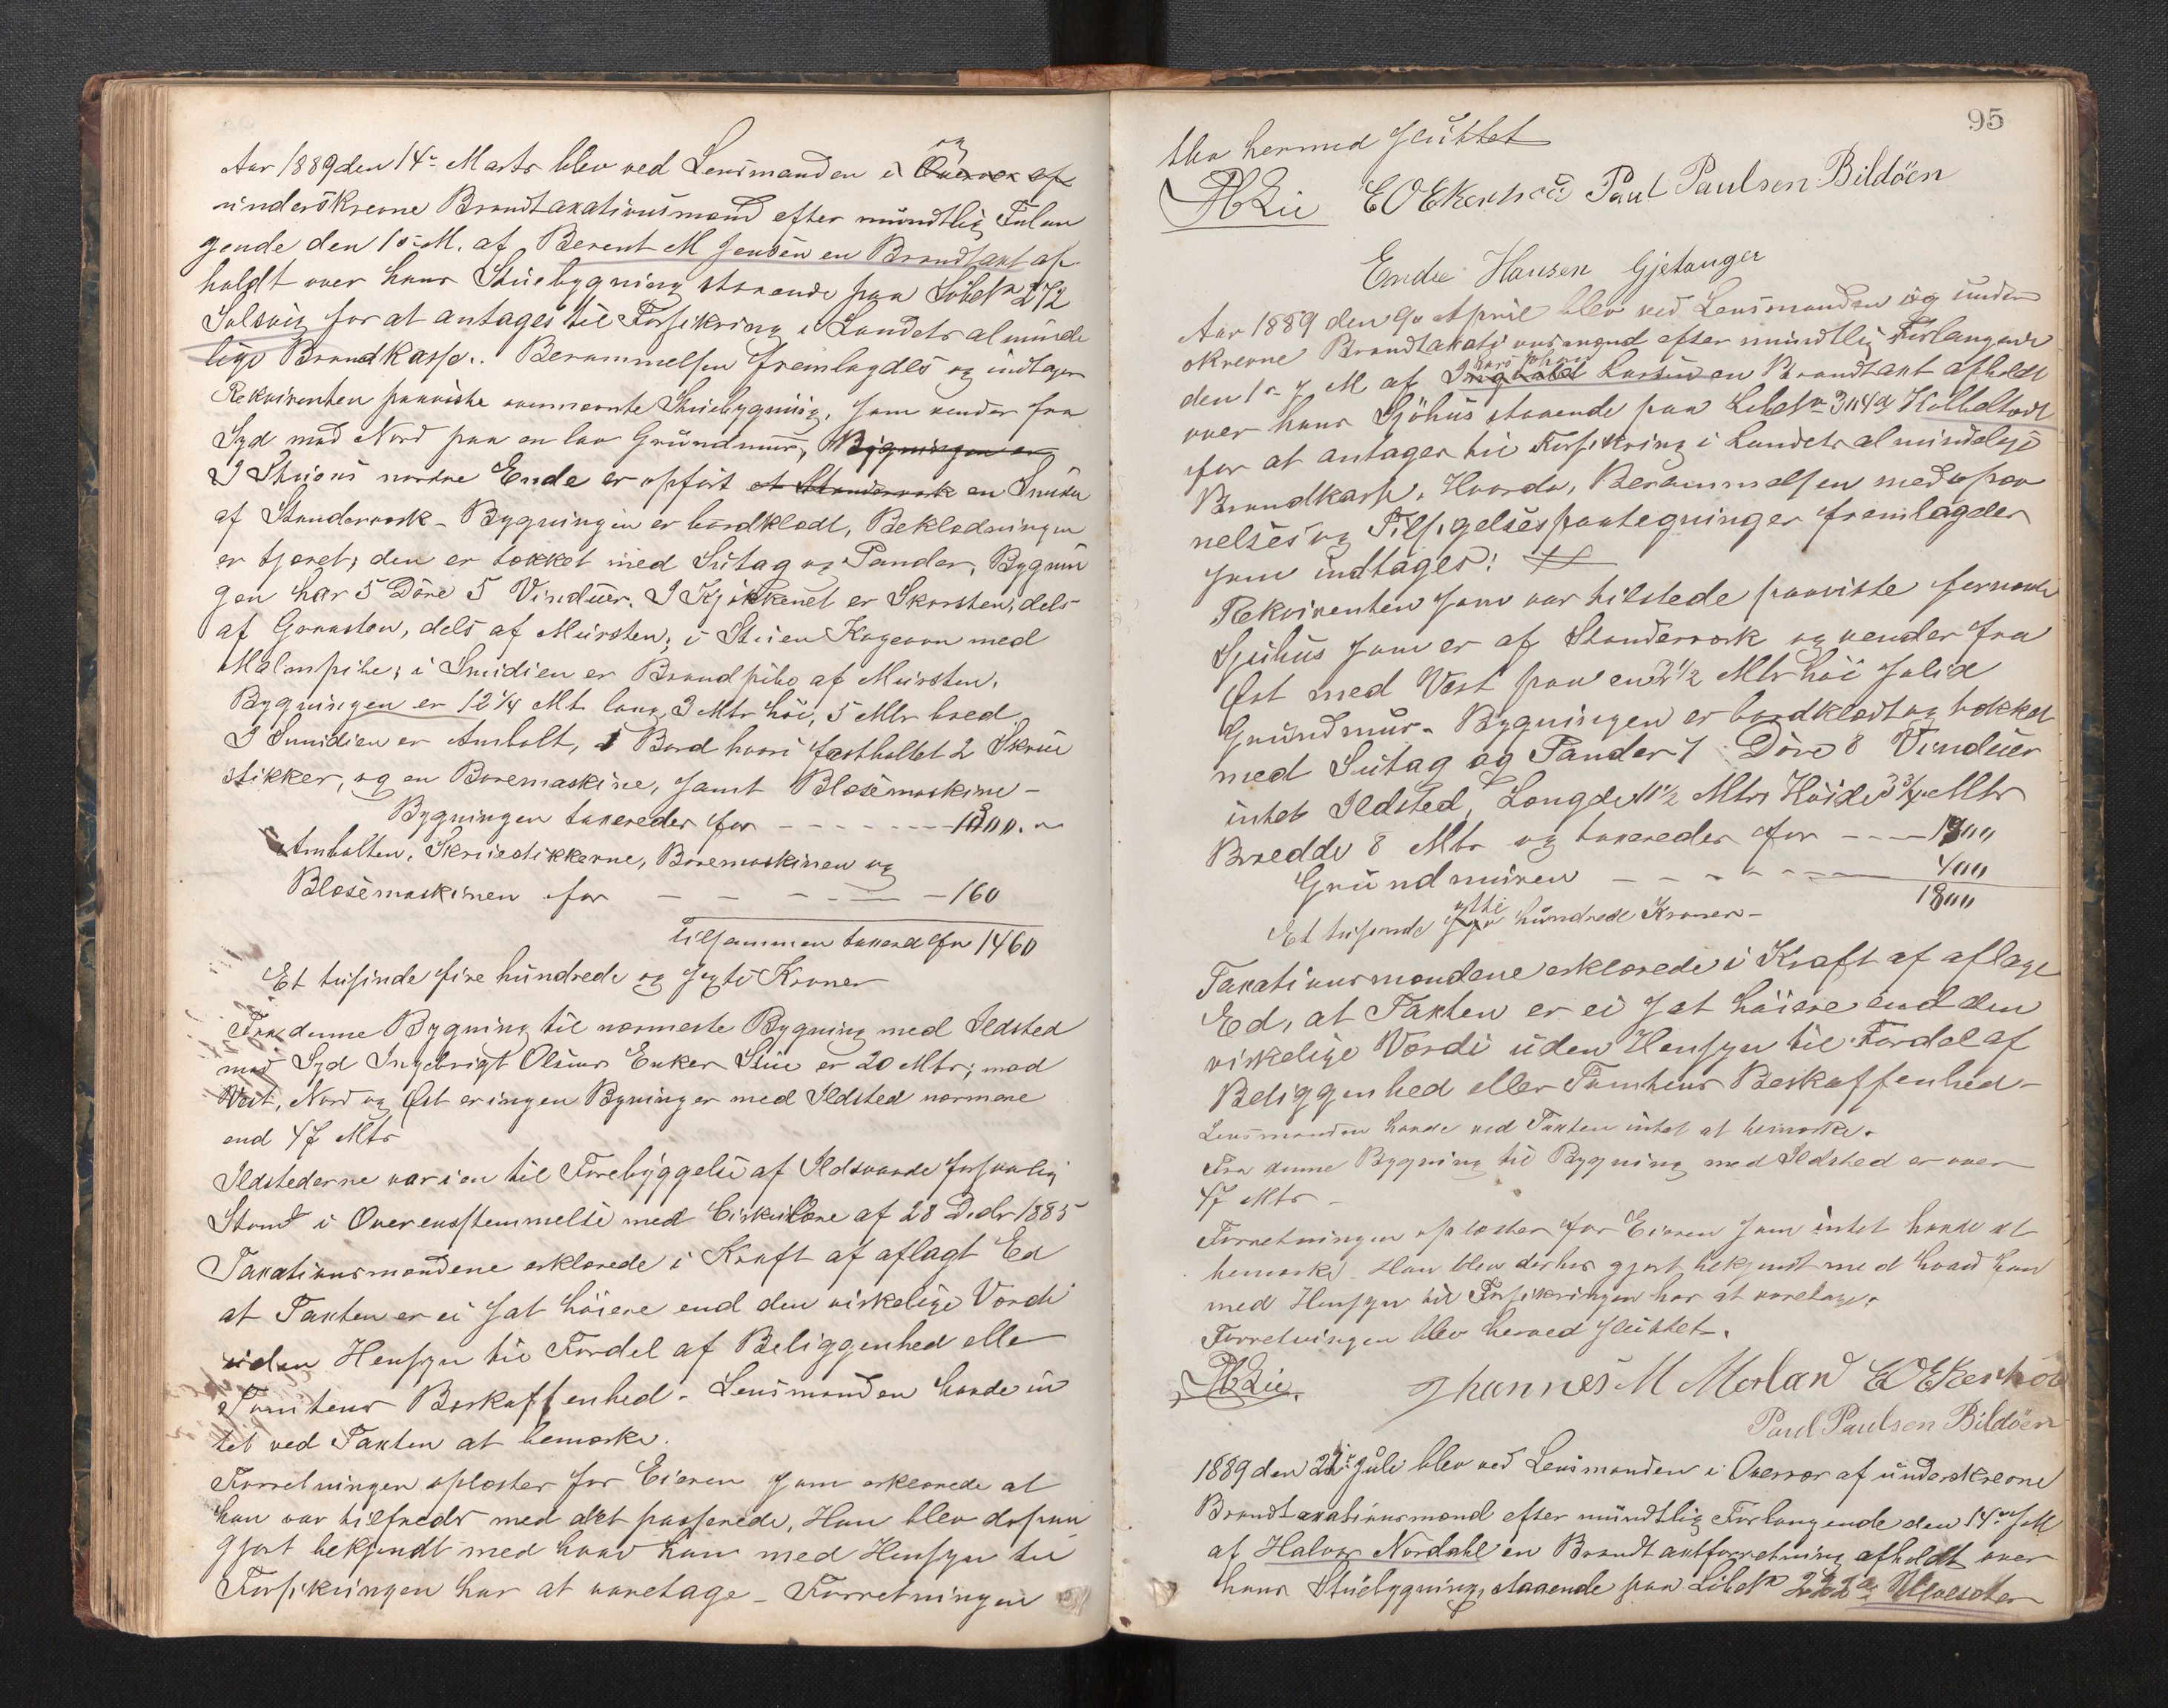 Aar 1889 den 14de Marts blev ved Lensmanden i Overvær af og
underskrevne Brandtaxationsmænd efter mundtlig Forlan
gende den 1ds M. af Berent M Jensen en Brandtaxt af
holdt over hans Stuebygning staaende paa Löbe No 272
Solsvig for at antages til Forsikring i Landets alminde
lige Brandkasse. Berammelsen fremlagdes og indtages
Rekvirenten paaviste ovennævnte Stuebygning, som vender fra
Syd mod Nord paa en lav Grundmur, Bygningen er
I Stuens nordre Ende er opført et Standerværk en Smidie
af Standerværk - Bygningen er bordklædt, Beklædningen
er tjæret; den er tækket med Sutag og Pander, Bygnin
gen har 5 Döre 5 Vinduer. I Kjøkkenet er Skorsten, dels
af Graasten, dels af Mursten; i Stuen Kogeovn med
Malmpibe; i Smidien er Brandpibe af Mursten.
Bygningen er 12 1/4 Mt. lang, 3 Mtr höi, 5 Mtr bred
I Smidien er Ambolt, 1 Bord hvori fastholdet 2 Skrue
stikker, og en Boremaskine, samt Blæsemaskine -
Bygningen taxeredes for - - - - - - - 1300. "
Ambolten, Skruestikkerne, Boremaskinen og
Blæsemaskinen for - - - - - - 160
tilsammen taxered for 1460
Et tusinde fire hundrede og sexti Kroner
Fra denne Bygning til nærmeste Bygning med Ildsted
mod Syd Ingebrigt Olsens Enkes Stue er 20 Mtr; mod
Vest, Nord og Öst er ingen Bygninger med Ildsted nærmere
end 47 Mtr
Ildstederne var i en til Forebyggelse af Ildsvaade forsvarlig
Stand i Overensstemmelse med Cirkulære af 28 Decbr 1885
Taxationsmændene erklærede i Kraft af aflagt Ed
at Taxten er ei sat höiere end den virkelige Værdi
uden Hensyn til Fordel af Beliggenhed elle
Tomtens Beskaffenhed. Lensmanden havde in
tet ved Taxten at bemærke.
Forretningen oplæstes for Eieren som erklærede at
han var tilfreds med det passerede, Han blev derpaa
gjort bekjendt med hvad han med Hensyn til
Forsikringen har at varetage - Forretningen
95
blev hermed sluttet
ALie E O Ekerhovd Paul Paulsen Bildöen
Endre Hansen Gjetanger
Aar 1889 den 9de April blev ved Lensmanden og under
skrevne Brandtaxationsmænd efter mundtlig Forlangende
den 1ste d. M. af Ingvald Larsen en Brandtaxt afholdt
over hans Sjöhus staaende paa Löbe No 304a Kolbeltveit
for at antages til Forsikring i Landets almindelige
Brandkasse. Hvorda, Berammelsen med opnæv
nelses og Tilsigelsespaategninger fremlagdes
som indtages:
Rekvirenten som var tilstede paaviste fornævnte
Sjöhus som er af Standerværk og vender fra
Öst mod Vest paa en 2 1/2 Mtr höi solid
Grundmur - Bygningen er bordklædt og tækket
med Sutag og Pander 7 Döre 8 Vinduer
intet Ildsted, Længde 11 1/2 Mtr, Höide 3 3/4 Mtr
Bredde 8 Mtr og taxeredes for - - - 1400
Grundmuren - - - - - - 400
1800
Et tusende otte hundrede Kroner -
Taxationsmændene erklærede i Kraft af aflagt
Ed, at Taxten er ei sat höiere end den
virkelige Værdi uden Hensyn til Fordel af
Beliggenhed eller Tomtens Beskaffenhed -
Lensmanden havde ved Taxten intet at bemærke.
Fra denne Bygning til Bygning med Ildsted er over
47 Mtr -
Forretningen oplæstes for Eieren som intet havde at
bemærke. Han blev derhos gjort bekjendt med hvad han
med Hensyn til Forsikringen har at varetage.
Forretningen blev herved sluttet.
ALie. Johannes M Morland E O Ekerhovd
Paul Paulsen Bildöen
1889 den 22de Juli blev ved Lensmanden i Overvær af underskrevne
Brandtaxationsmænd efter mundtlig Forlangende den 14de d M
af Halvor Nordahl en Brandtaxtforretning afholdt over
hans Stuebygning, staaende paa Löbe No